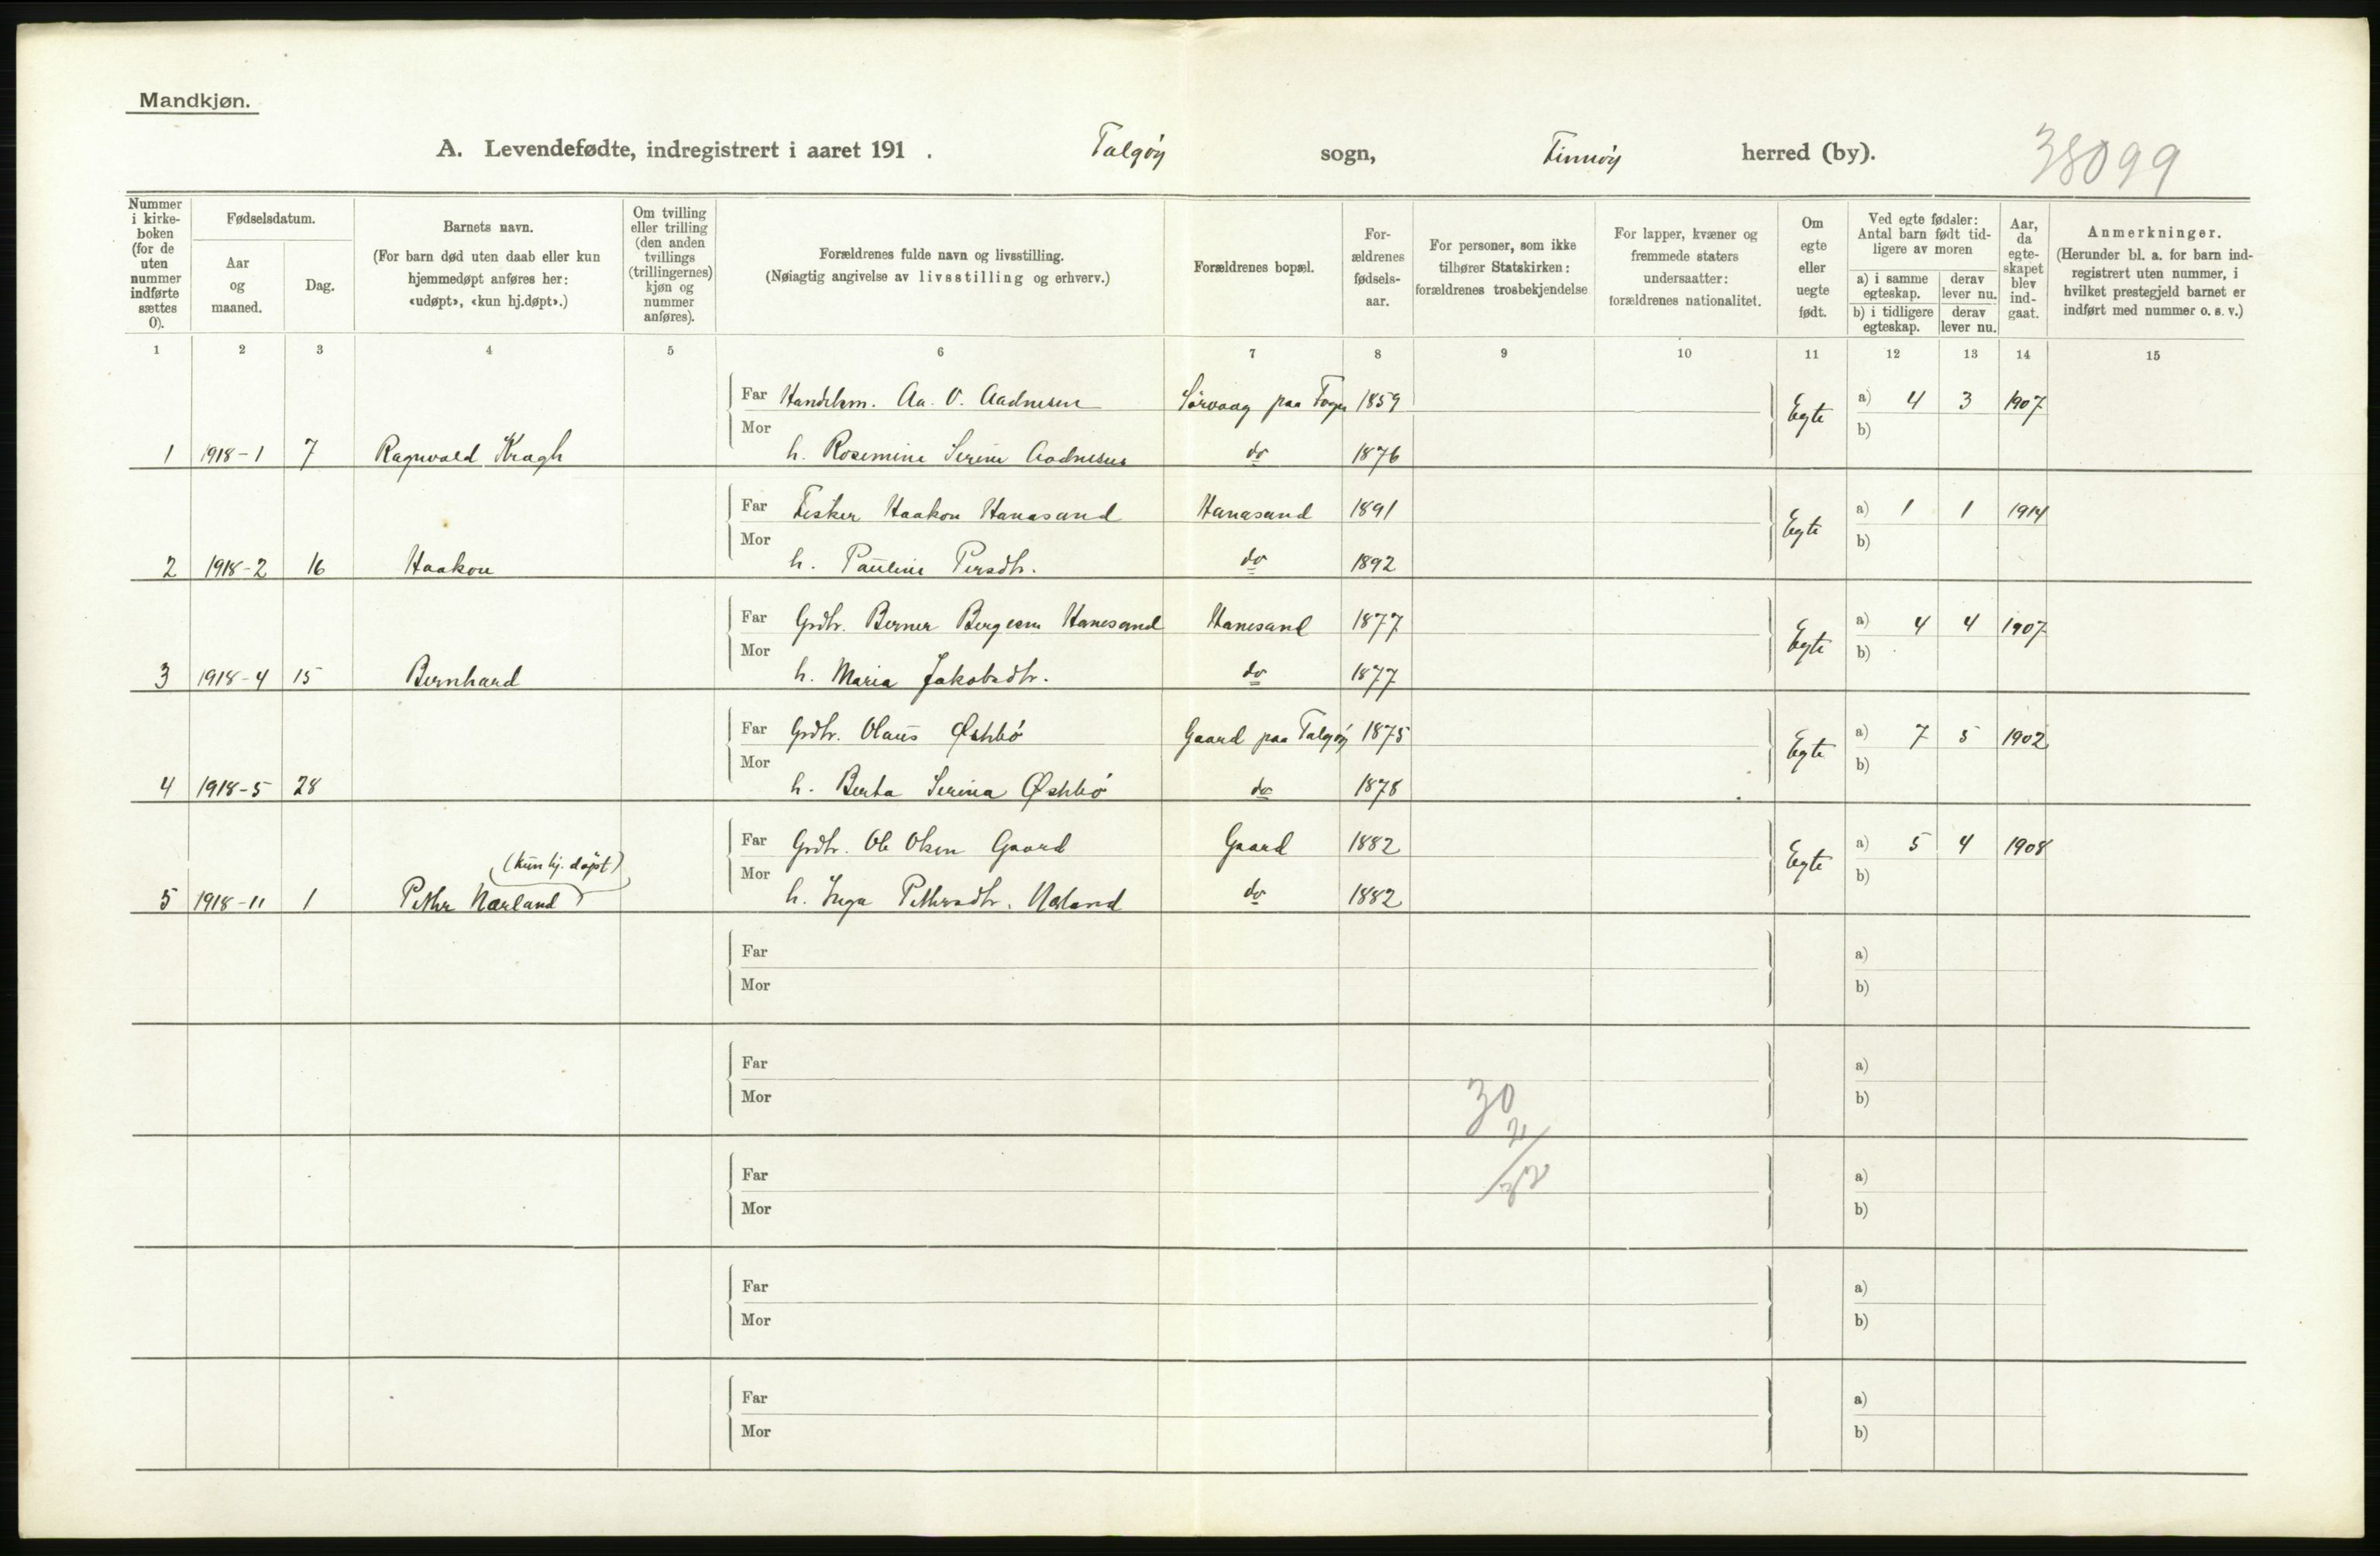 Mandkjøn.
A. Levendefødte, indregistrert i aaret 191 . Talgøy sogn, Finnøy herred (by). 38099
Nummer i kirke- boken (for de uten nummer indførte sættes 0).
Fødselsdatum.
Aar og maaned.
Dag.
Barnets navn.
(For barn død uten daab eller kun hjemmedøpt anføres her: «udøpt», «kun hj.døpt».)
Om tvilling eller trilling (den anden tvillings (trillingernes) kjøn og nummer anføres).
Forældrenes fulde navn og livsstilling.
(Nøiagtig angivelse av livsstilling og erhverv.)
Forældrenes bopæl.
For- ældrenes fødsels- aar.
For personer, som ikke tilhører Statskirken: forældrenes trosbekjendelse
For lapper, kvæner og fremmede staters undersaatter: forældrenes nationalitet.
Om egte eller uegte født.
Ved egte fødsler: Antal barn født tid- ligere av moren
a) i samme egteskap.
derav lever nu.
b) i tidligere egteskap.
derav lever nu.
Aar, da egte- skapet blev ind- gaat.
Anmerkninger.
(Herunder bl. a. for barn ind- registrert uten nummer, i hvilket prestegjeld barnet er indført med nummer o. s. v.)
1 2 3 4 5 6 7 8 9 10 11 12 13 14 15
Far Handelsm. Aa. O. Aadnesen Sørvaag paa 1859 Egte a) 4 3 1907
Mor b)
1 1918-1 7 Ragnvald Kragh h. Rosemine Serine Aadnesen do 1876
Far Fisker Haakon Hanasand Hanasand 1891 Egte a) 1 1 1914
Mor b)
2 1918-2 16 Haakon h. Pauline Persdtr. do 1892
Far Grdbr. Berner Bergesen Hanesand Hanesand 1877 Egte a) 4 4 1907
Mor b)
3 1918-4 15 Bernhard h. Maria Jakobsdtr. do 1877
Far Grdbr. Olaus Østhbø Gaard paa Talgøy 1875 Egte a) 7 5 1902
Mor b)
4 1918-5 28 h. Berta Serina Østhbø do 1878
Far Grdbr. Ole Olsen Gaard Gaard 1882 Egte a) 5 4 1908
(kun hj. døpt)
Mor b)
5 1918-11 1 Petter Nærland h. Inga Pettersdtr. Nærland do 1882
Far a)
Mor b)
Far a)
Mor 30 b)
Far a)
Mor b)
Far a)
Mor b)
Far a)
Mor b)